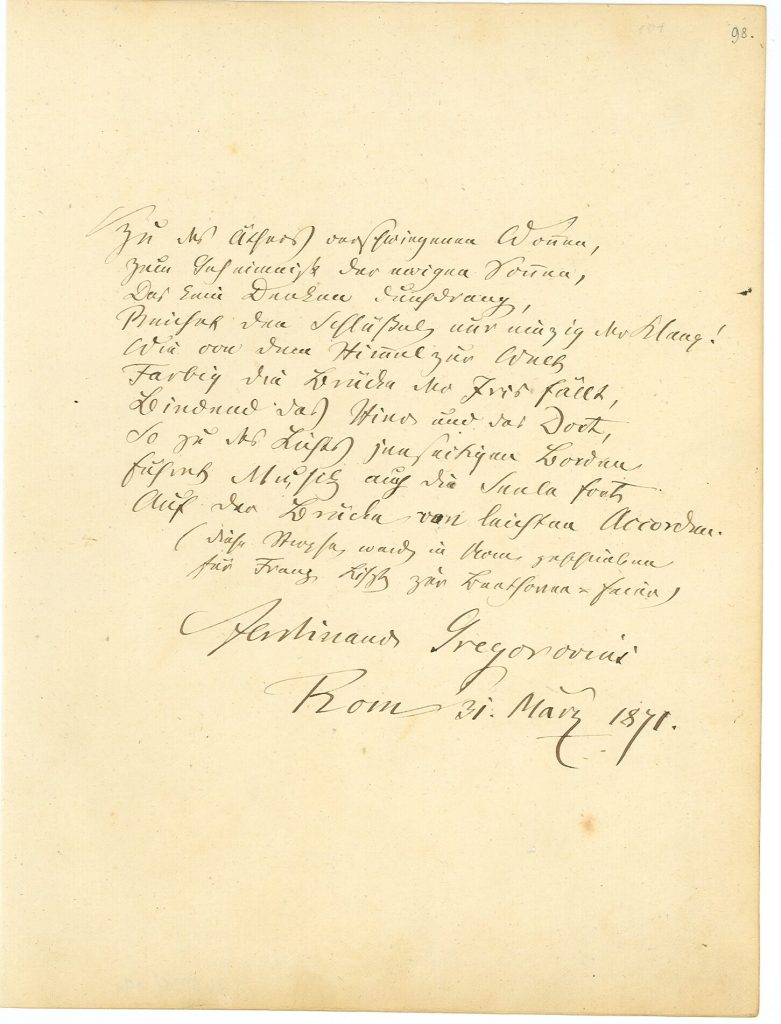 98.
Zu des Äthers verschwiegenen Wonnen,
Zum Geheimniß der ewigen Sonnen,
Das kein Denken durchdrang,
Reichet den Schlüßel nur einzig der Klang!
Wie von dem Himmel zur Welt
Farbig die Brücke der Iris fällt,
Bindend das Hier und das Dort,
So zu des Lichts jenseitigen Borden
Führet Musik auch die Seele fort
Auf der Brücke von leichten Accorden.
(diese Strophe, ward in Rom geschrieben
für Franz Liszt zur Beethoven-Feier)
Ferdinand Gregorovius
Rom 31. März 1871.